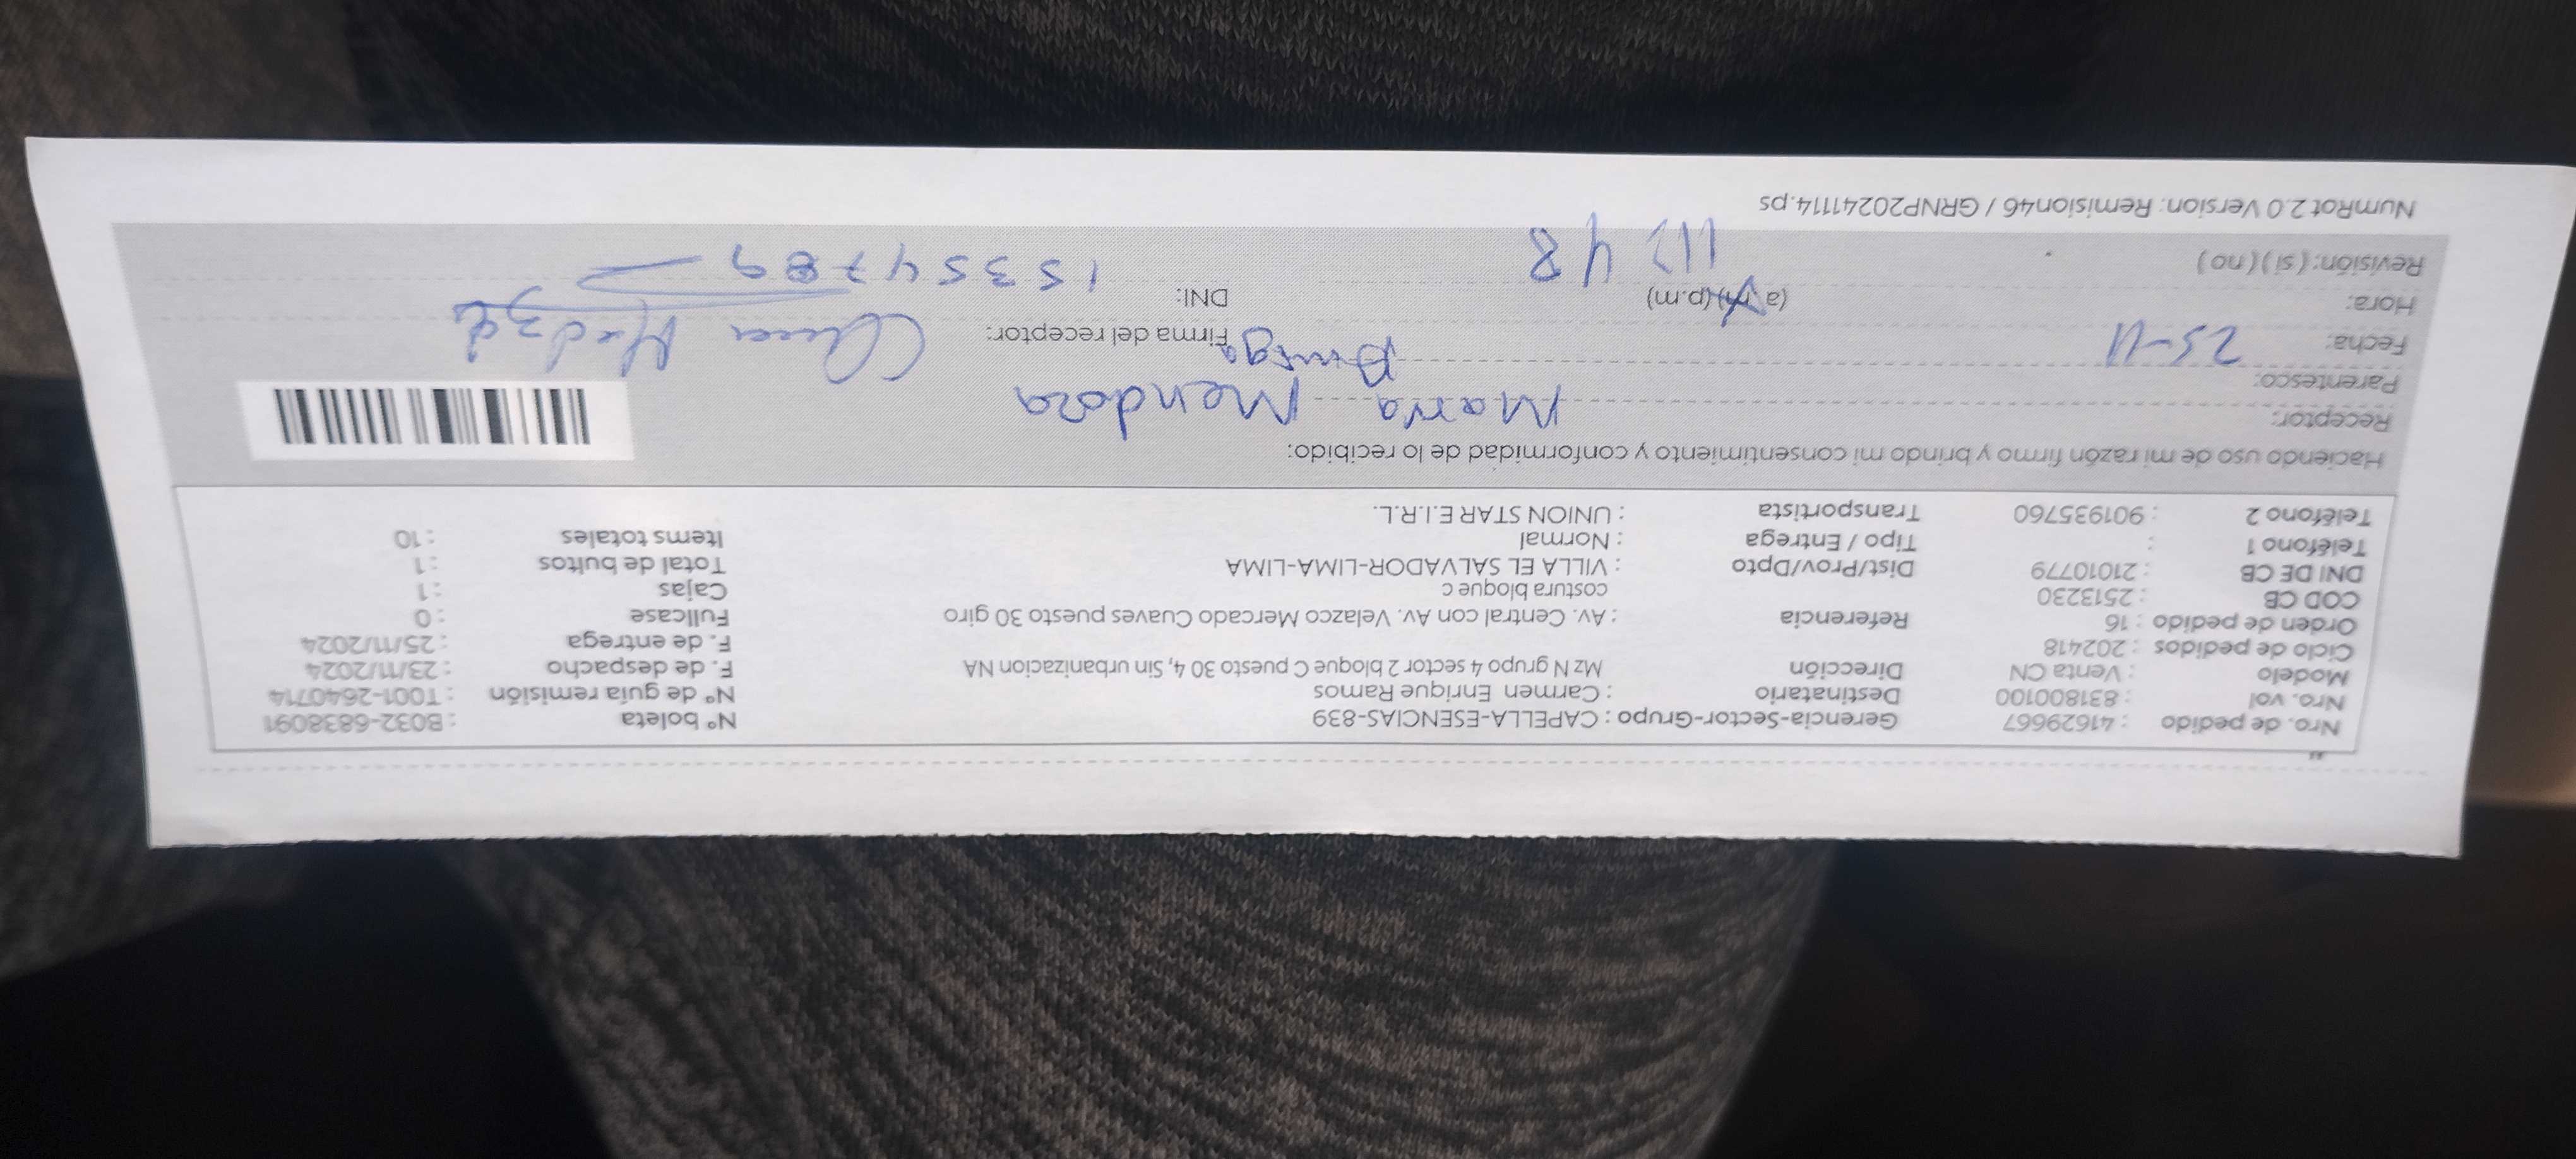 Nro. de pedido : 41629667 Gerencia-Sector-Grupo : CAPELLA-ESENCIAS-839 N° boleta : B032-6838091
Nro. vol : 831800100 Destinatario : Carmen Enrique Ramos N° de guía remisión : T001-2640714
Modelo : Venta CN Dirección Mz N grupo 4 sector 2 bloque C puesto 30 4, Sin urbanizacion NA F. de despacho : 23/11/2024
Ciclo de pedidos : 202418 F. de entrega : 25/11/2024
Orden de pedido : 16 Referencia : Av. Central con Av. Velazco Mercado Cuaves puesto 30 giro Fullcase : 0
COD CB : 2513230 costura bloque c Cajas : 1
DNI DE CB : 21010779 Dist/Prov/Dpto : VILLA EL SALVADOR-LIMA-LIMA Total de bultos : 1
Teléfono 1 : Tipo / Entrega : Normal Items totales : 10
Teléfono 2 : 901935760 Transportista : UNION STAR E.I.R.L.
Haciendo uso de mi razón firmo y brindo mi consentimiento y conformidad de lo recibido:
Receptor: Maria Mendoza
Parentesco: Amiga
Fecha: 25-11 Firma del receptor:
Hora: (a.m) (p.m) 11:48 DNI: 15354789
Revisión: ( si ) ( no )
NumRot 2.0 Version: Remision46 / GRNP20241114.ps